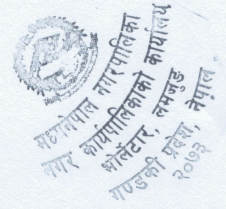 मध्यनेपाल नगरपालिका
नगर कार्यपालिकाको कार्यालय
भोर्लेटार, लमजुङ
गण्डकी प्रदेश, नेपाल
२०७३